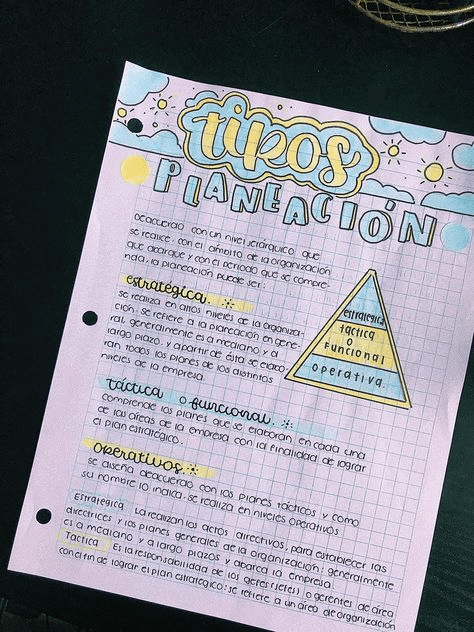 tipos
PLANEACIÓN
Deacuerdo con un nivel jerárquico que
se realice, con el ámbito de la organización
que abarque y con el periodo que se compre-
nda, la planeación puede ser:
estratégica.
se realiza en altos niveles de la organiza-
ción; se refiere a la planeación en gene-
ral, generalmente es a mediano y a
largo plazo, y apartir de ésta se elabo-
ran todos los planes de los distintos
niveles de la empresa.
estratégica
táctica
o
Funcional
operativa.
táctica o funcional.
comprende los planes que se elaboran, en cada una
de las áreas de la empresa con la finalidad de lograr
el plan estratégico.
operativos
se diseña deacuerdo con los planes tácticos y como
su nombre lo indica, se realiza en niveles operativos
Estratégica La realizan los actos directivos, para establecer las
directrices y los planes generales de la organización; generalmente
es a mediano y a largo plazos y abarca la empresa.
Táctica Es la responsabilidad de los gerentes o gerentes de área
con el fin de lograr el plan estratégico; se refiere a un área de organización